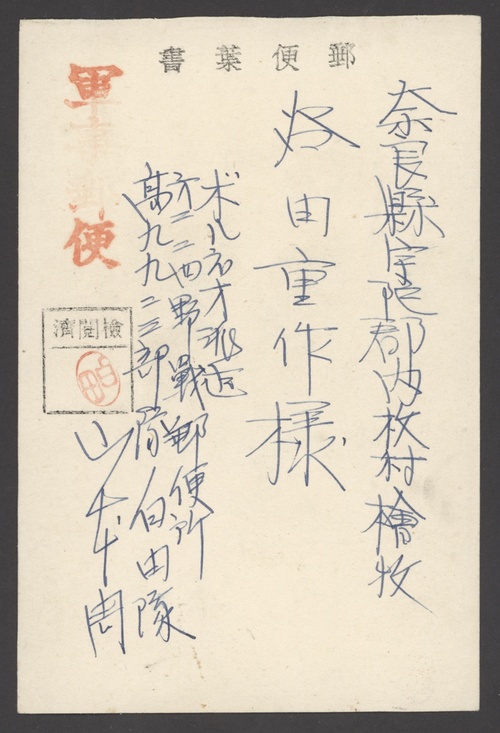 郵便葉書
奈良縣宇陀郡内牧村檜牧
田重作様
ボルネオ派遣
第二二四野戰郵便所
髙九九二三部隊白田隊
山本周
軍事郵便
檢閲濟
白田